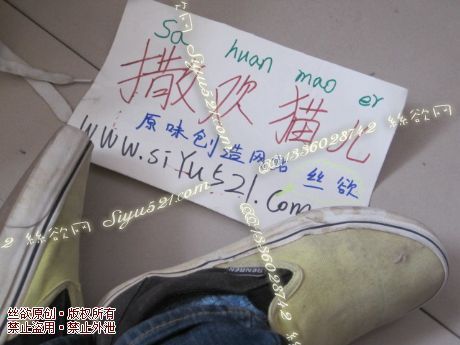 Sa huan mao er
撒欢猫儿
原味创造网站 丝欲
www.siyu521.com
絲欲网 Siyu521.com @1336028742 絲欲网
2 絲欲网 Siyu521.com @1336028742 絲欲网
丝欲原创·版权所有
禁止盗用·禁止外泄